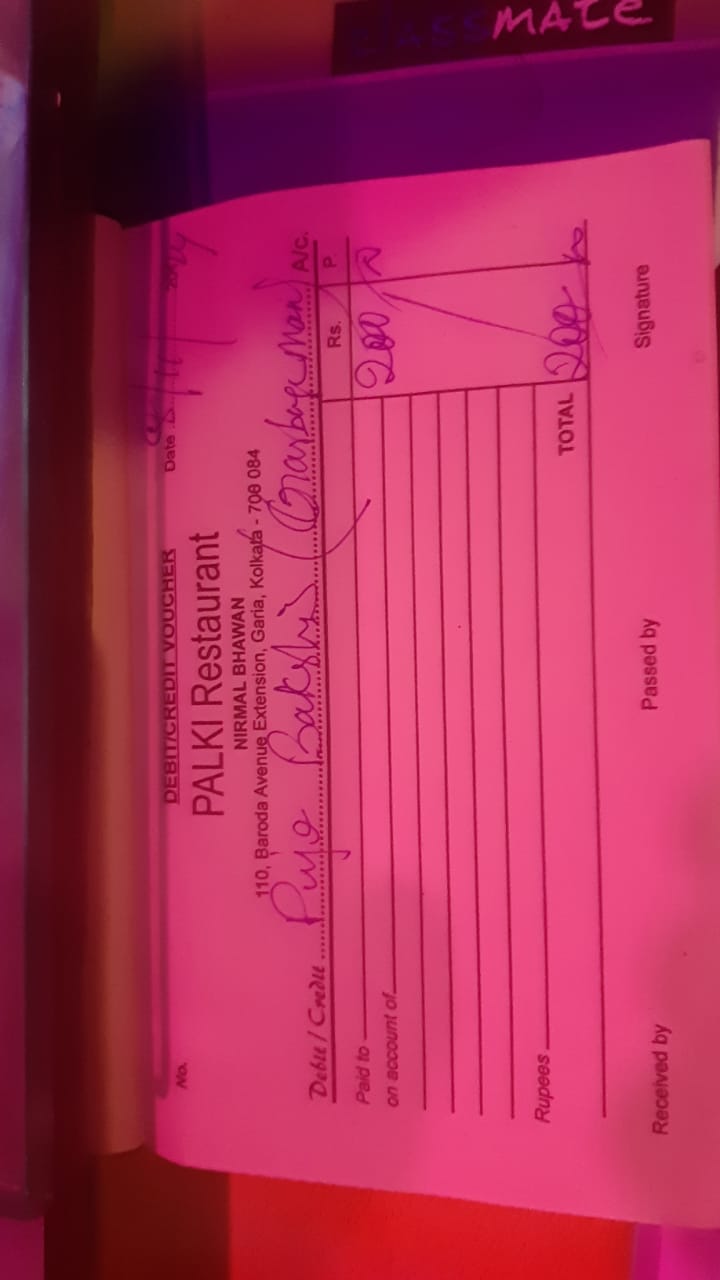 classmate
DEBIT/CREDIT VOUCHER
No. Date 8/11/2024
PALKI Restaurant
NIRMAL BHAWAN
110, Baroda Avenue Extension, Garia, Kolkata - 708 084
Debit / Credit Pujo Bakshis (Garbage Man) A/c.
Rs. P.
Paid to 200
on account of
Rupees TOTAL 200
Received by Passed by Signature